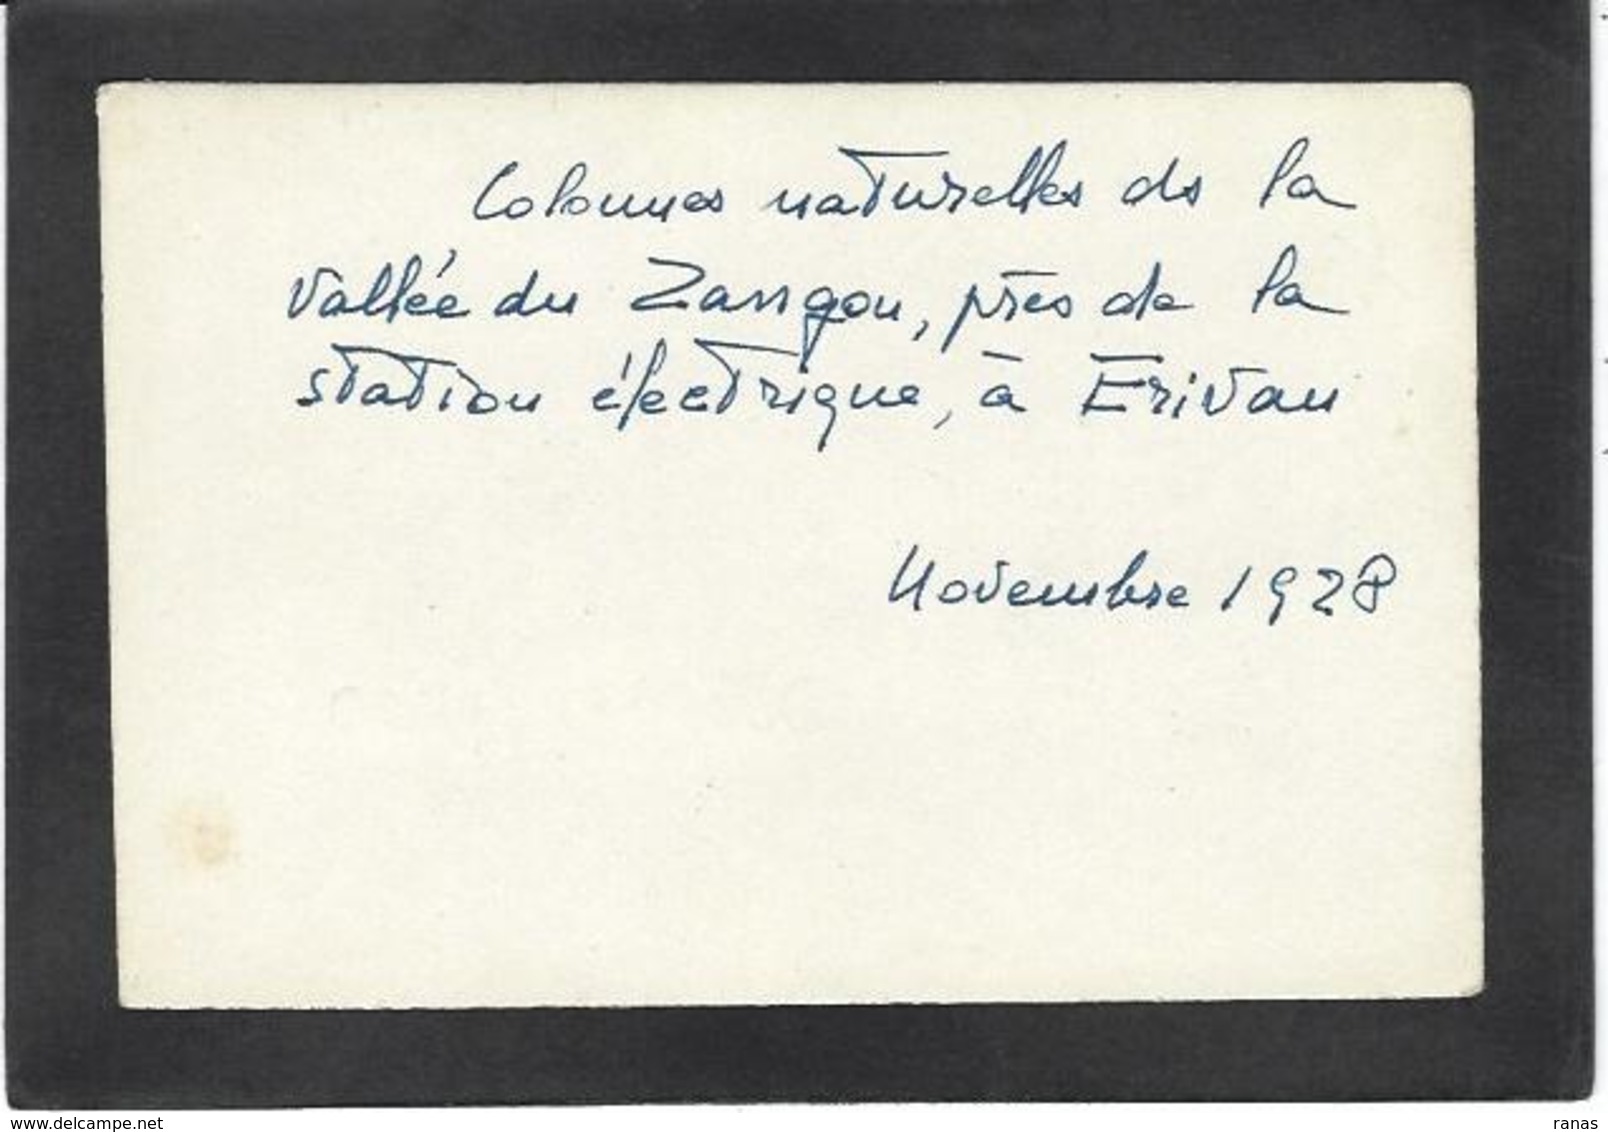 Colonnes naturelles ds la
vallée du Zangou, près de la
station électrique, à Erivan
Novembre 1928
www.delcampe.net
ranas